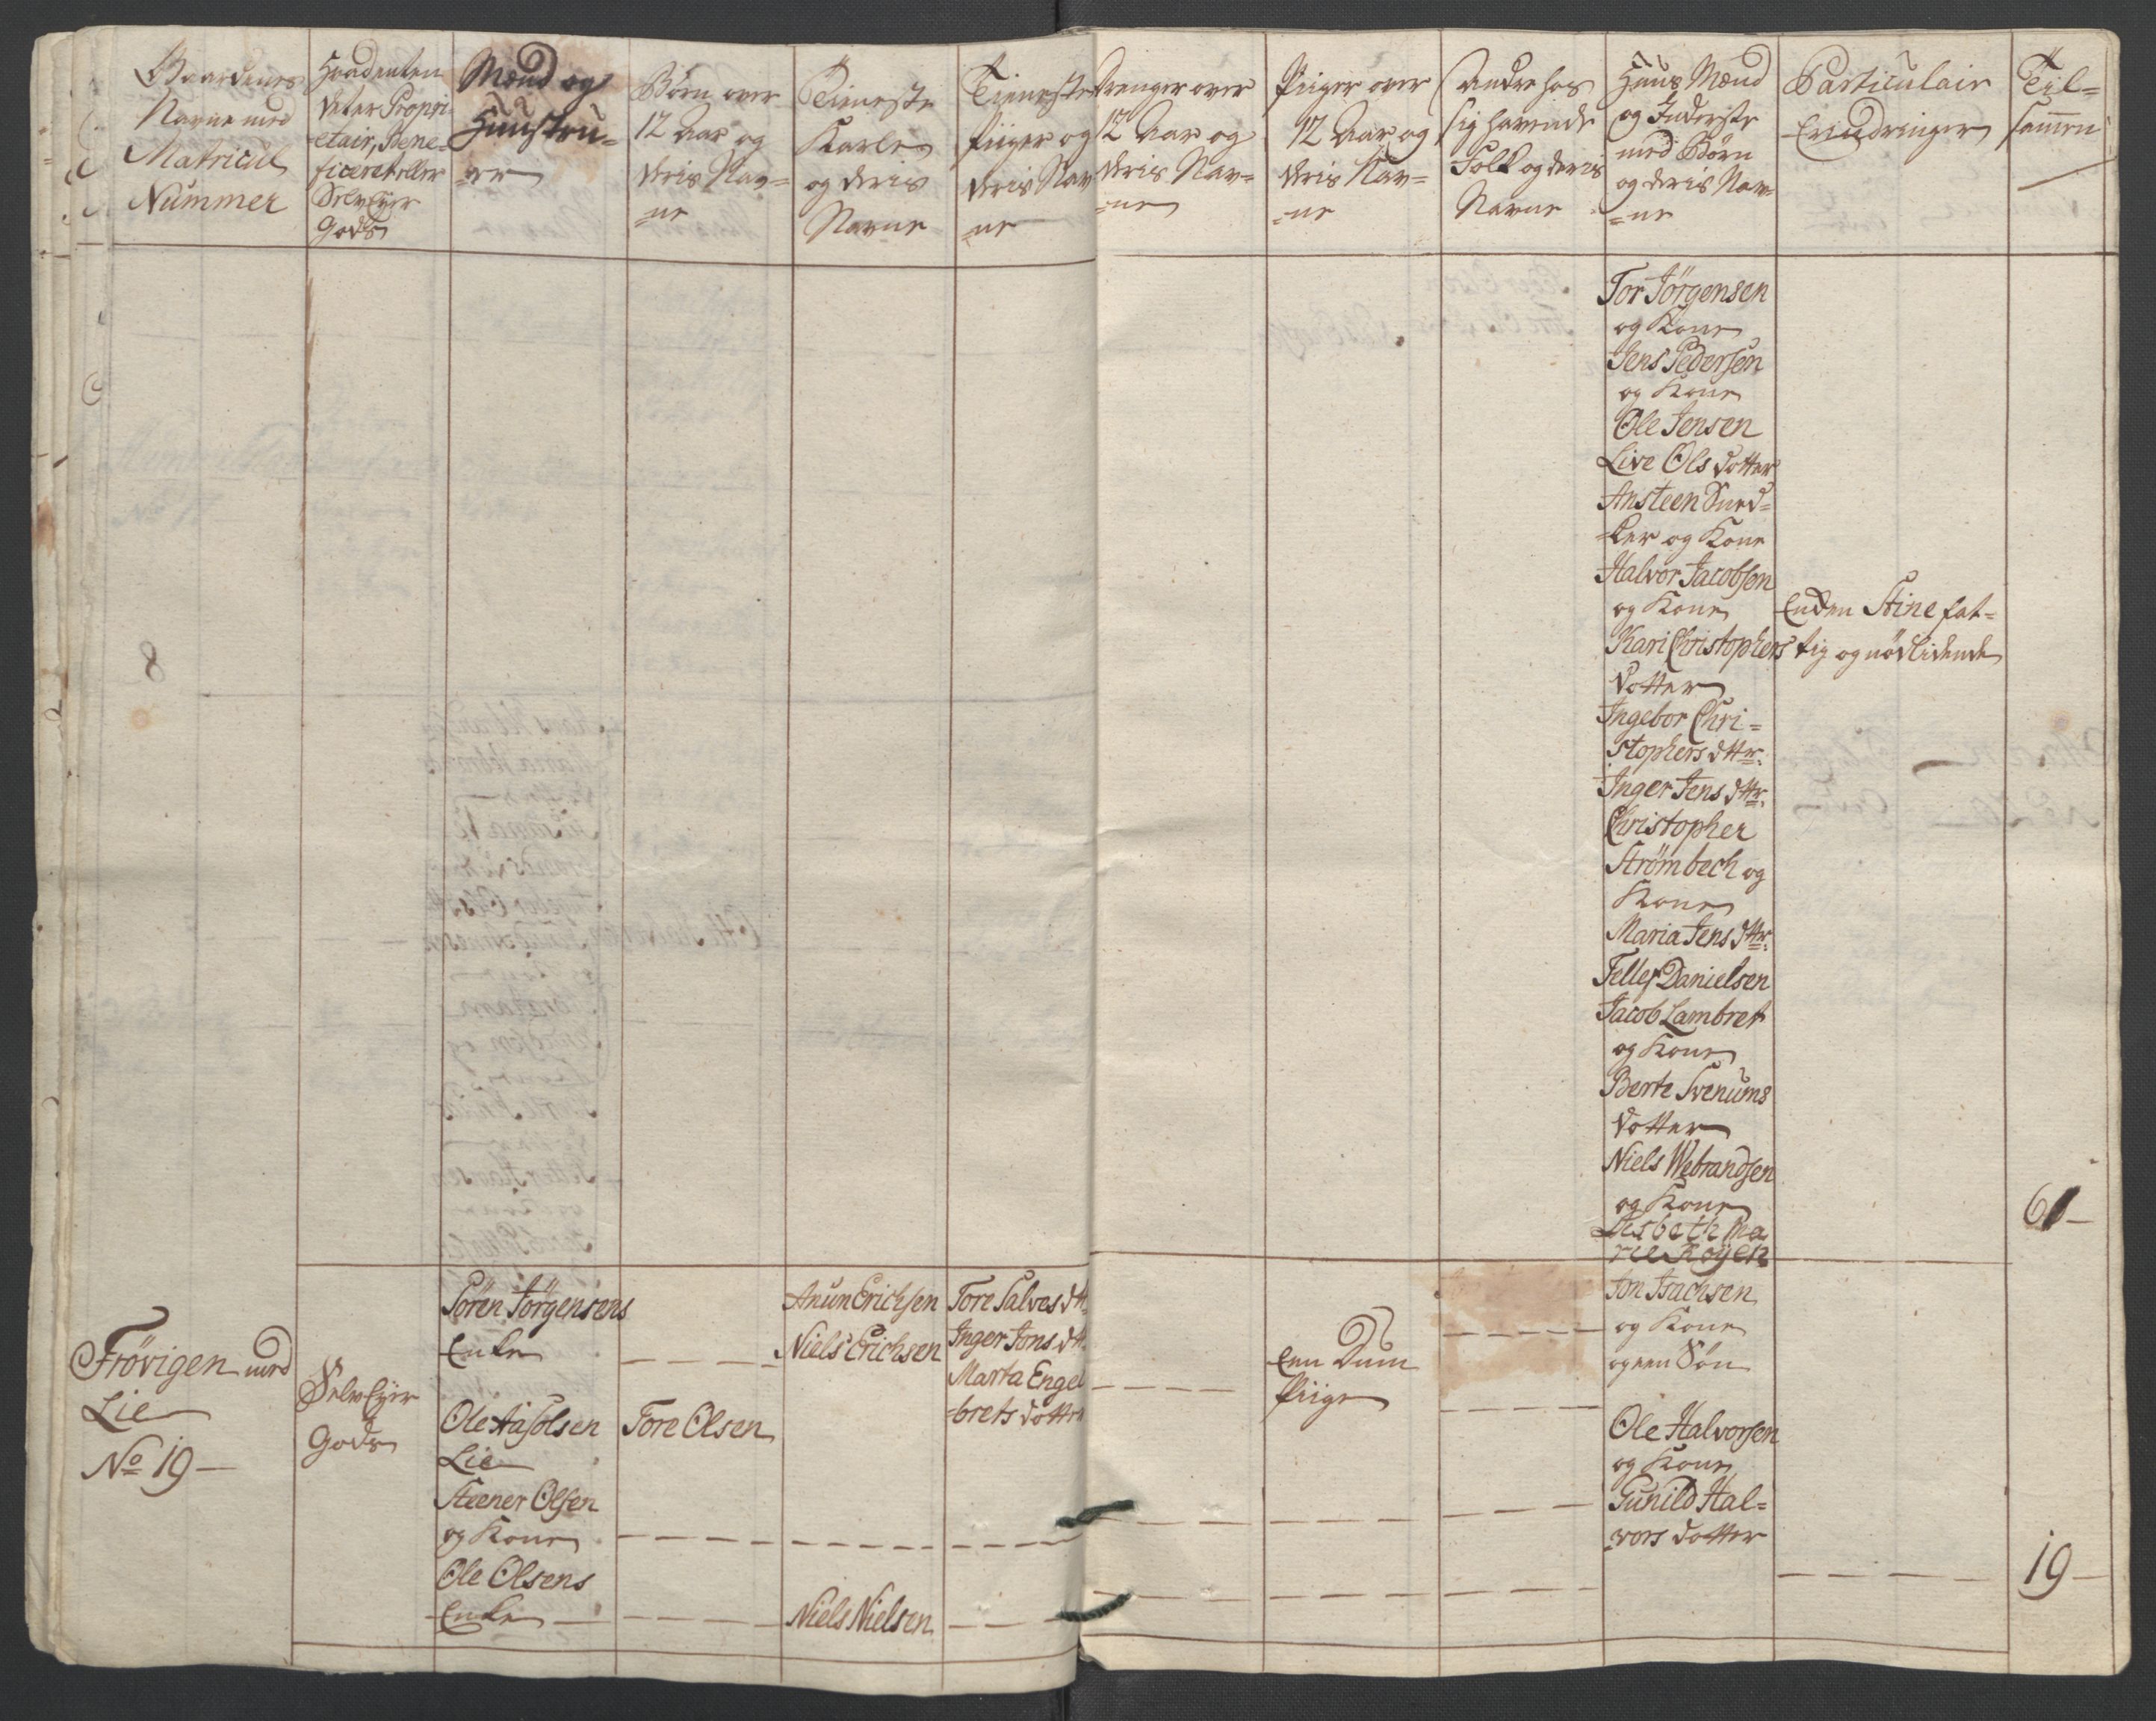 Gaardenes
Navne med
Matricul
Nummer
Hvad enten
det er Propri-
etair, Bene-
ficeret eller
SelvEyer
Gods
Mænd og
Hunstru-
er
Børn over
12 Aar og
deris Nav=
=ne
Tieneste
Karle
og deris
Navne
Tieneste
Piiger og
deris Nav
=ne
Drenger over
12 Aar og
deris Nav=
=ne
Piiger over
12 Aar og
deris Nav=
=ne
Andre hos
sig havende
Folk og deris
Navne
Huus Mænd
og Inderste
med Børn
og deris Nav=
=ne
Particulair
Erindringer
Til=
sammen
Tor Jörgensen
og Kone
Jens Pedersen
og Kone
Ole Jensen
Live Ols dotter
Ansteen Sned=
=ker og Kone
Halvor Jacobsen
og Kone
Kari Christophers
dotter
Ingebor Chri=
stophers dttr.
Inger Jens dttr.
Christopher
Strömbech og
Kone
Maria Jens dttr.
Tellef Danielsen
Jacob Lambret
og Kone
Berte Svenums
dotter
Niels Webrandsen
og Kone
Lisbeth Ma
rie Röyen
Enken Stine fat=
tig og nödlidende
61
8
Frövigen med
Lie
No 19
SelvEyer
Gods
Sören Jörgensens
Enke
Ole Aasolsen
Lie
Steener Olsen
og Kone
Ole Olsens
Enke
Tore Olsen
Anun Erichsen
Niels Erichsen
Niels Nielsen
Tore Salves dtt
Inger Jons dtt
Marta Engel
=brets dotter
Een Dum
Piige
Jon Isachsen
og Kone
og een Sön
Ole Halvorsen
og Kone
Gunild Hal=
vors dotter
19